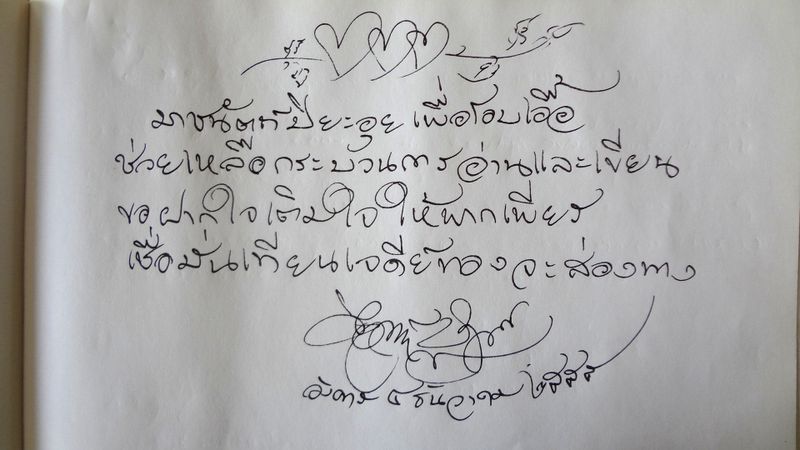 มาชนัตถ์ปิยะอุย เพื่อโอบเอื้อ
ช่วยเหลือกระบวนการอ่านและเขียน
ขอฝากใจเติมใจให้พากเพียร
เชื่อมั่นเทียนเจดีย์ทองจะส่องทาง
อังคาร ๕ ธันวาคม ๒๕๕๕